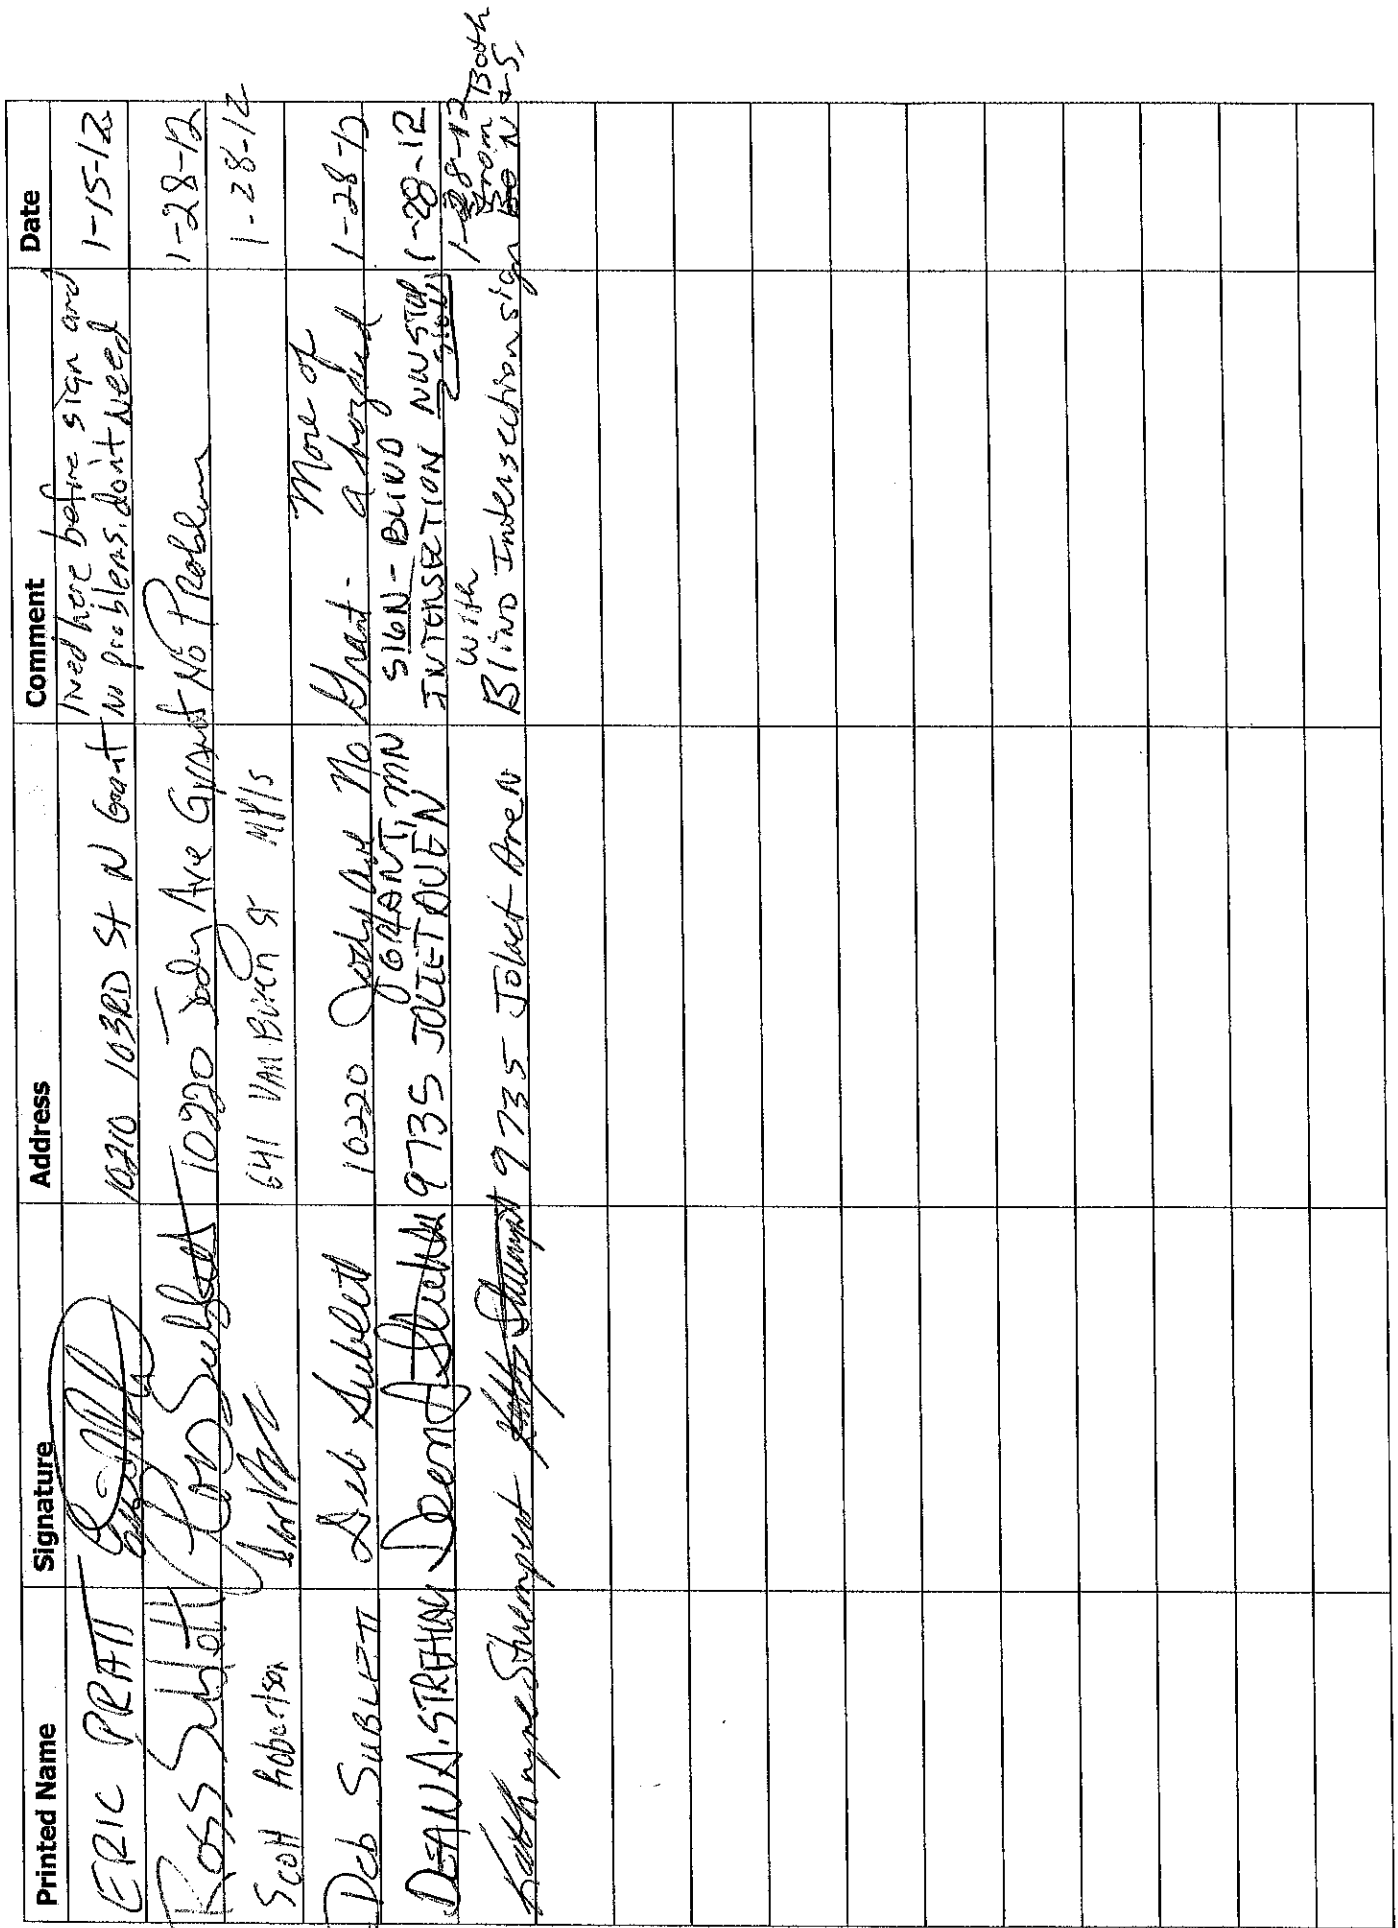 Printed Name Signature Address Comment Date
ERIC PRATT 10210 103RD St N Grant lived here before sign and No problems. don't Need 1-15-12
Ross Sublett Ross Sublett 10220 Jody Ave Grant No Problem 1-28-12
Scott Robertson 641 Van Buren St Mpls 1-28-12
Deb Sublett Deb Sublett 10220 Jody Ave No Grant - More of a hazard 1-28-12
DEAN A. Dean A 9735 JOLIET AVE N GRANT, MN SIGN - BLIND INTERSECTION NW STOP SIGN 1-28-12
Strempert 9735 Joliet Ave N With Blind Intersection sign From Both N & S, 1-28-12